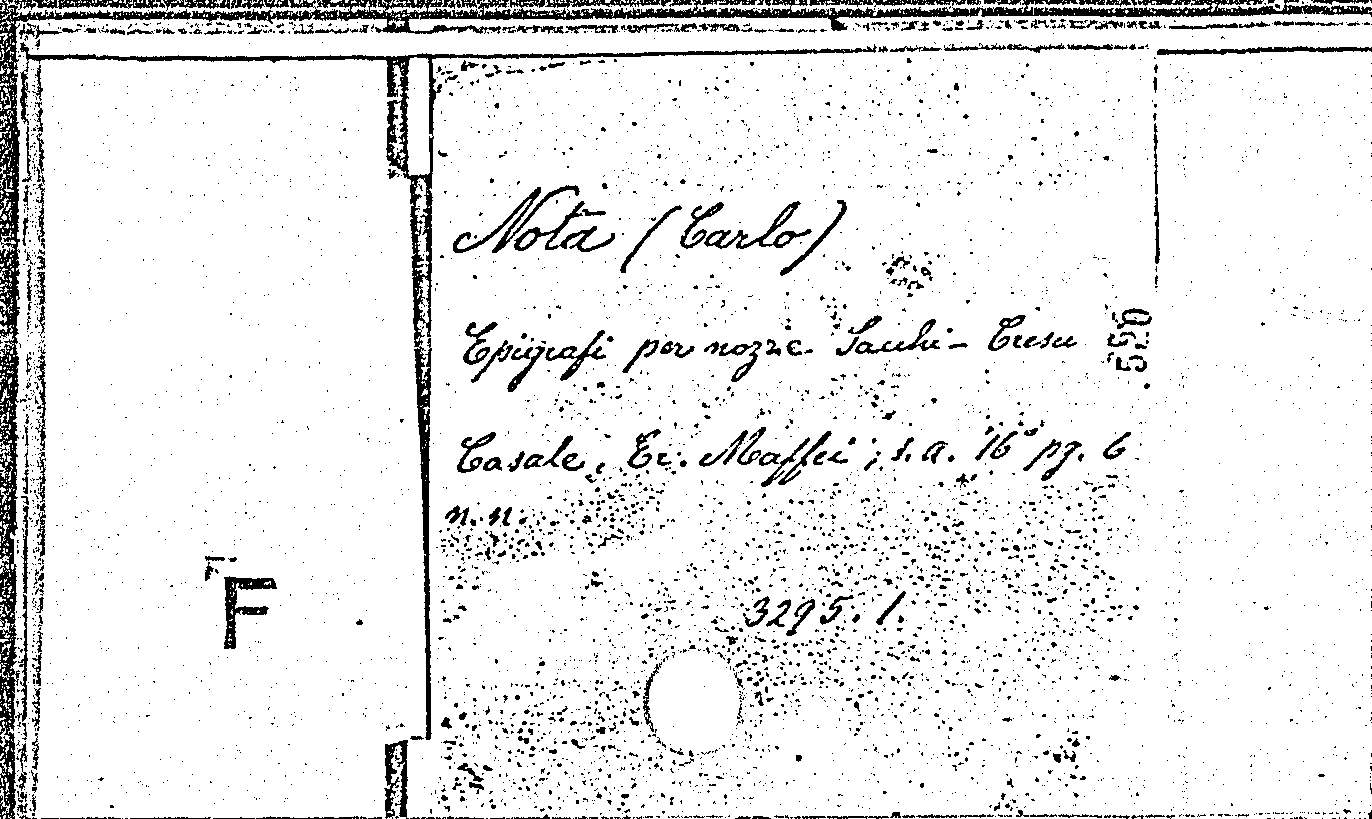 Nota (Carlo)
Epigrafi per nozze Sacchi - Cresu
Casale, Er. Maffei; s.a. 16° pg. 6
n. n.
3295. 1.
520
F